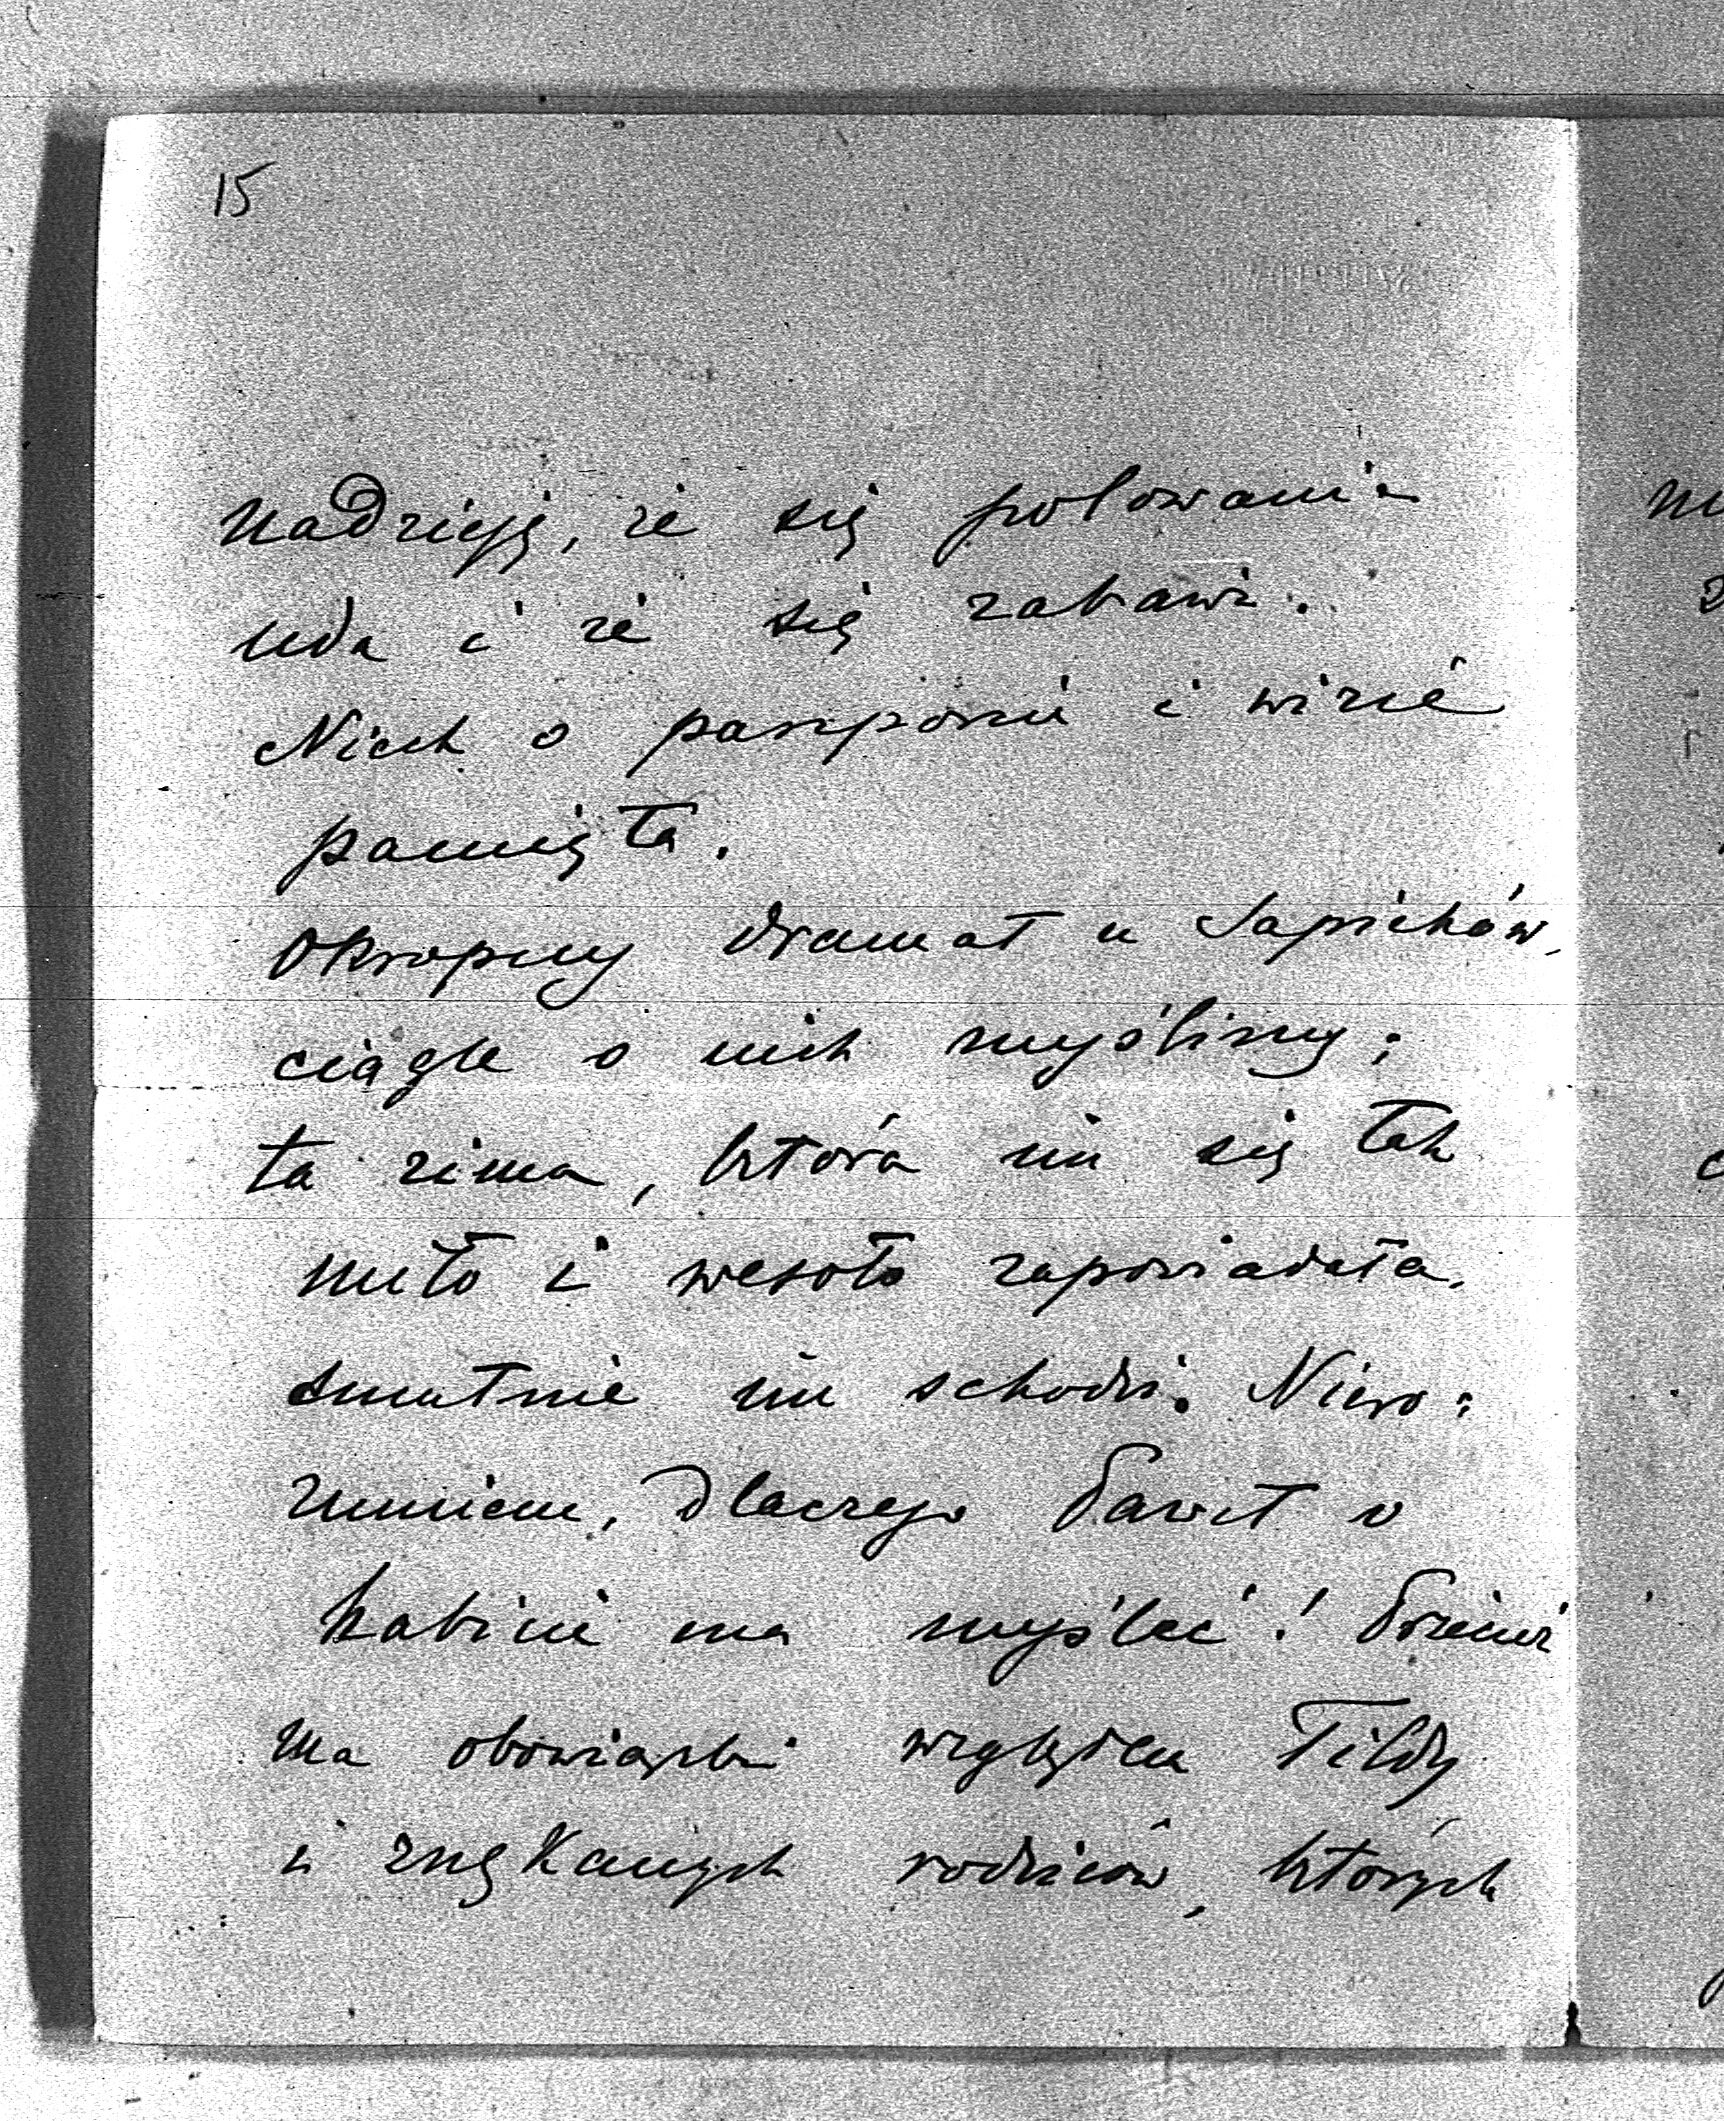 15
nadzieję, że się polowanie
uda i że się zabawi.
Niech o paszporcie i wizie
pamięta.
Okropny dramat u Sapiehów,
ciągle o nich myślimy;
ta zima, która im się tak
miło i wesoło zapowiadała,
smutnie im schodzi. Niero:
zumiem, dlaczego Paweł o
Kabinie ma myśleć! Przecież
ma obowiązki względem Tildy
i znękanych rodziców, których